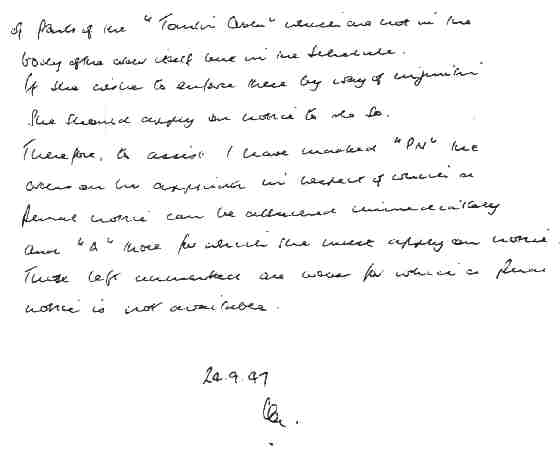 of parts of the "Tomlin Order" which are not in the
body of the order itself but in the Schedule.
If she wishes to enforce these by way of injunction
she should apply on notice to do so.
Therefore, to assist I have marked "PN" the
orders on her application in respect of which a
Penal notice can be attached immediately
and "A" those for which she must apply on notice.
Those left unmarked are those for which a Penal
notice is not available.
24.9.97